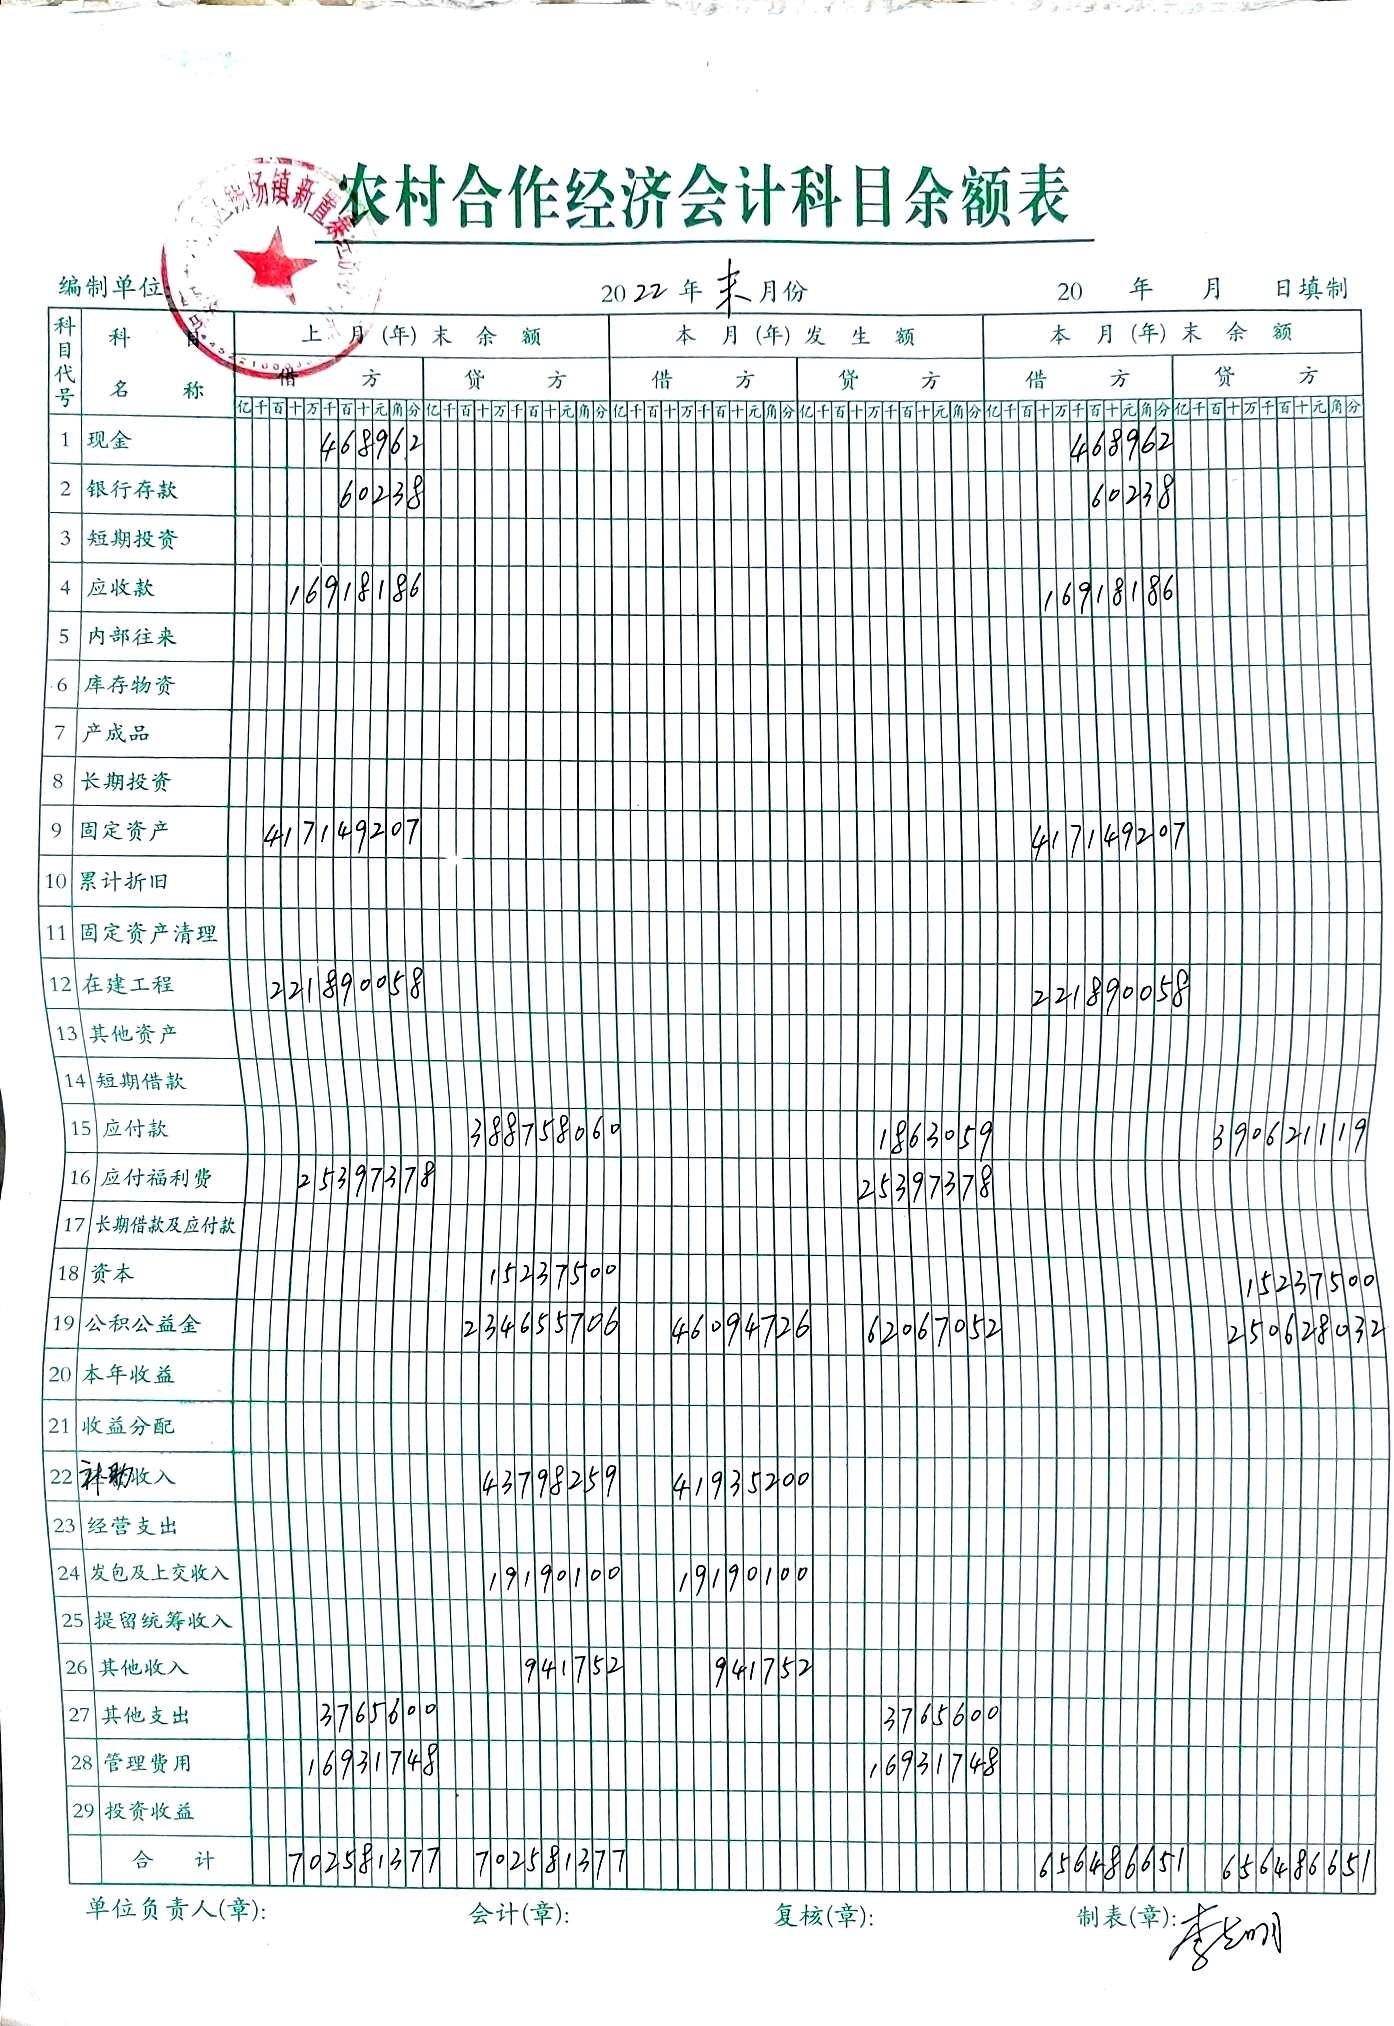 场镇新置
农村合作经济会计科目余额表
编制单位 2022年末月份 20 年 月 日填制
科目代号 科目名称 上月(年)末余额 本月(年)发生额 本月(年)末余额
借方 贷方 借方 贷方 借方 贷方
亿千百十万千百十元角分 亿千百十万千百十元角分 亿千百十万千百十元角分 亿千百十万千百十元角分 亿千百十万千百十元角分 亿千百十万千百十元角分
1 现金 468962 468962
2 银行存款 60238 60238
3 短期投资
4 应收款 16918186 16918186
5 内部往来
6 库存物资
7 产成品
8 长期投资
9 固定资产 417149207 417149207
10 累计折旧
11 固定资产清理
12 在建工程 221890058 221890058
13 其他资产
14 短期借款
15 应付款 388758060 1863059 390621119
16 应付福利费 25397378 25397378
17 长期借款及应付款
18 资本 15237500 15237500
19 公积公益金 234655706 46094726 62067052 250628032
20 本年收益
21 收益分配
22 补助收入 43798259 41935200
23 经营支出
24 发包及上交收入 19190100 19190100
25 提留统筹收入
26 其他收入 941752 941752
27 其他支出 3765600 3765600
28 管理费用 16931748 16931748
29 投资收益
合计 702581377 702581377 656486651 656486651
单位负责人(章): 会计(章): 复核(章): 制表(章):